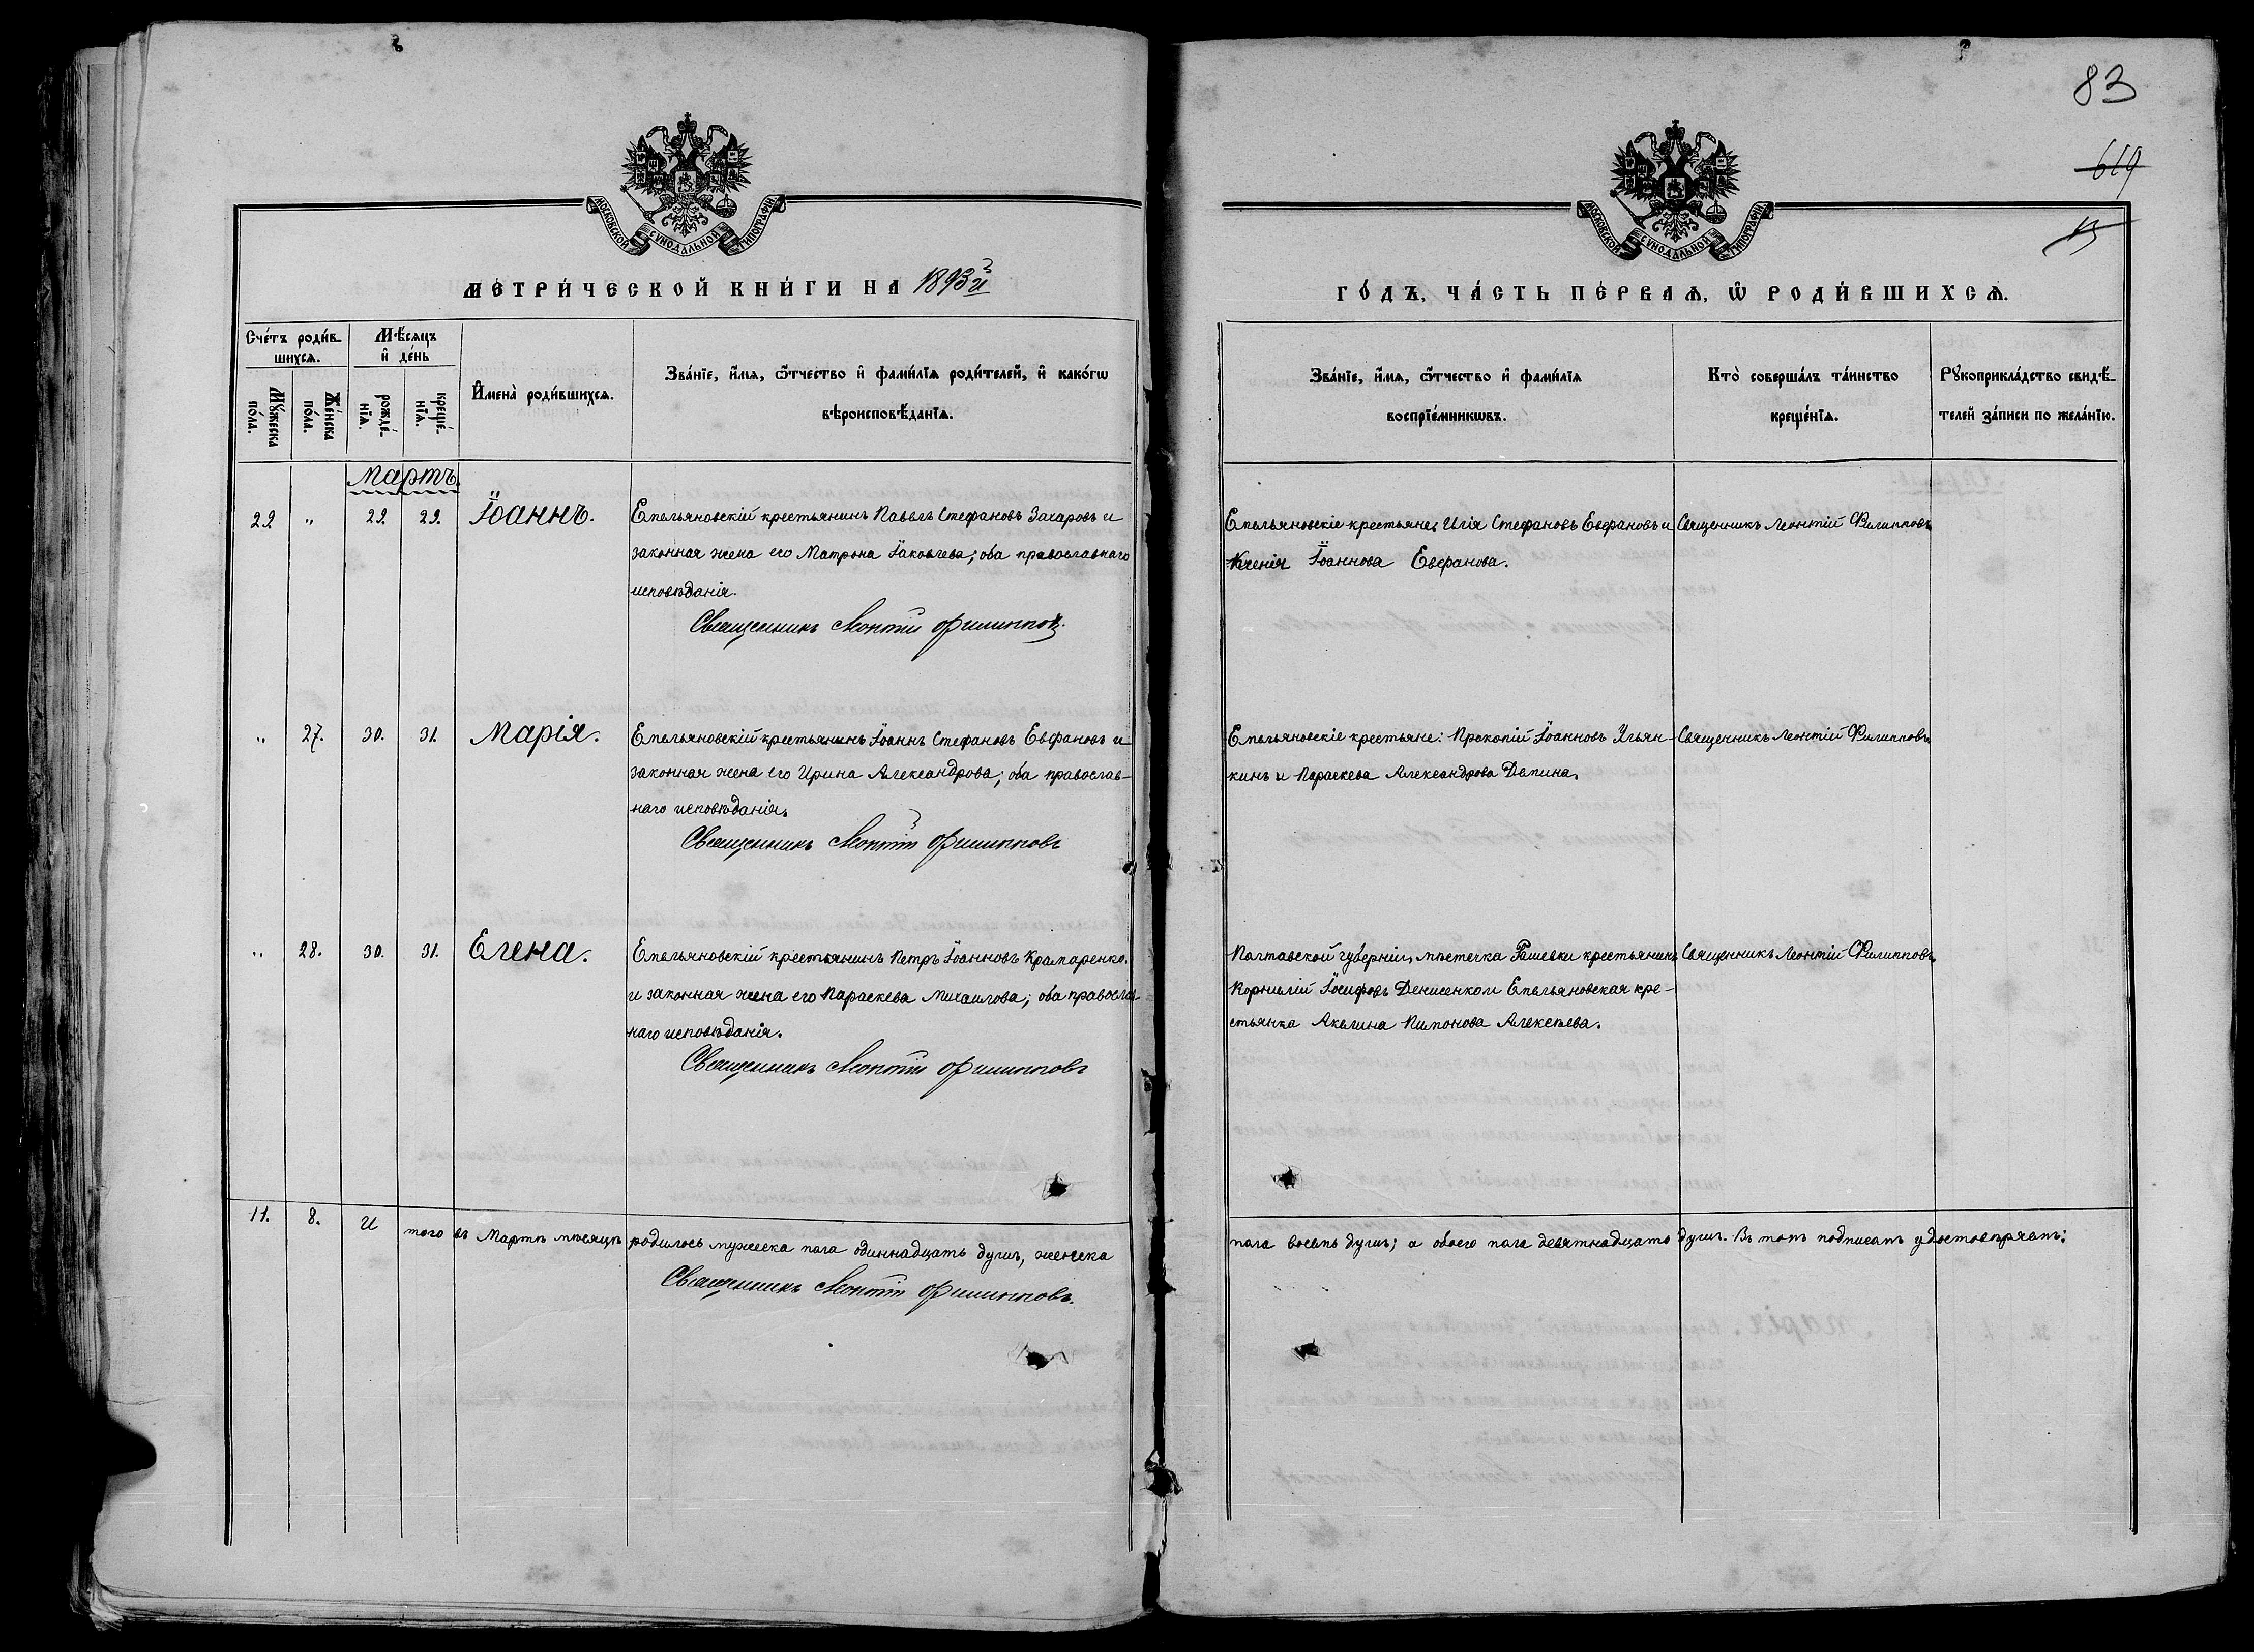 83
619
МОСКОВСКОЙ СУНОДАЛЬНОЙ ТИПОГРАФІИ
МОСКОВСКОЙ СУНОДАЛЬНОЙ ТИПОГРАФІИ
МЕТРИ́ЧЕСКОЙ КНИ́ГИ НА 1893й
ГО́ДЪ, ЧА́СТЬ ПЕ́РВАѦ, Ѿ РОДИ́ВШИХСѦ.
Сче́тъ роди́в-
шихсѧ.
Мꙋ́жеска
по́ла.
Же́нска
по́ла.
Мѣ́сѧцъ
и҆ де́нь
рожде́-
нїѧ.
креще́-
нїѧ.
И҆мена̀ роди́вшихсѧ.
Зва́нїе, и҆́мѧ, ѻ҆́тчество и҆ фами́лїѧ роди́телей, и҆ како́гѡ
вѣроисповѣ́данїѧ.
Зва́нїе, и҆́мѧ, ѻ҆́тчество и҆ фами́лїѧ
воспрїе́мникѡвъ.
Кто̀ соверша́лъ та́инство
креще́нїѧ.
Рꙋкоприкла́дство свидѣ́-
телей за́писи по жела́нїю.
Мартъ.
22 " 29. 29. Іоаннъ.
Емельяновскій крестьянинъ Павелъ Стефановъ Захаровъ и
законная жена его Матрона Іаковлева; оба православнаго
исповѣданія.
Священникъ Леонтій Филипповъ.
Емельяновскіе крестьяне: Илія Стефановъ Евфановъ и
Ксенія Іоаннова Евфанова.
Священникъ Леонтій Филипповъ
" 27. 30. 31. Марія.
Емельяновскій крестьянинъ Іоаннъ Стефановъ Евфановъ и
законная жена его Ирина Александрова; оба православ-
наго исповѣданія.
Священникъ Леонтій Филипповъ
Емельяновскіе крестьяне: Прокопій Іоанновъ Ульян-
кинъ и Параскева Александрова Демина.
Священникъ Леонтій Филипповъ
" 28. 30. 31. Елена.
Емельяновскій крестьянинъ Петръ Іоанновъ Крамаренко.
и законная жена его Параскева Михаилова; оба православ-
наго исповѣданія.
Священникъ Леонтій Филипповъ
Полтавской губерніи, мѣстечка крестьянинъ
Корнилій Іосифовъ Денисенко и Емельяновская кре-
стьянка Акилина Пимонова Алексѣева.
Священникъ Леонтій Филипповъ
11. 8. И того въ Мартѣ мѣсяцѣ родилось мужеска пола одиннадцать душъ, женска
пола восемь душъ; а обоего пола девятнадцать душъ. Въ томъ подписомъ удостовѣряемъ:
Священникъ Леонтій Филипповъ.